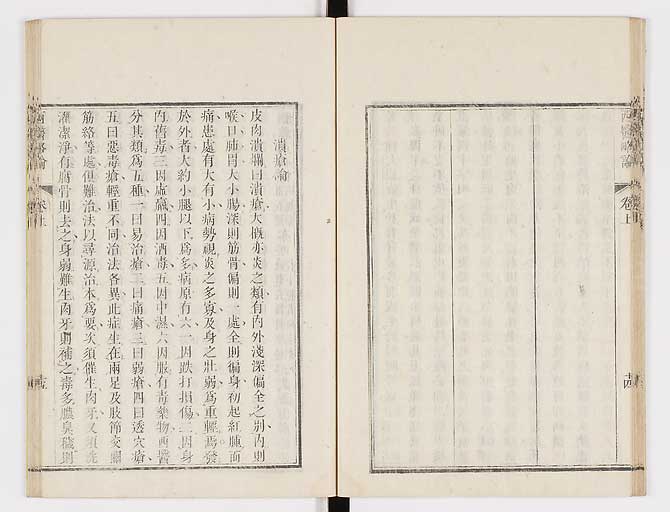 潰瘡論
皮肉潰爛曰潰瘡大概亦炎之類有內外淺深偏全之別內則
喉口肺胃大小腸深則筋骨偏則一處全則偏身初起紅腫面
痛患處有大有小病勢視炎之多寡及身之壯弱爲重輕焉發
於外者大約小腿以下爲多病原有六一因跌打損傷二因身
內舊毒三因虛藏四因酒毒五因中濕六因服有毒藥物西醫
分其類爲五種一曰易治瘡二曰痛瘡三曰弱瘡四曰透穴瘡
五曰惡毒瘡輕重不同治法各異此症生在兩足及肢節交關
筋絡等處但難治法以尋源治本爲要次須催生肉牙又須洗
潔淨有腐骨則去之身弱難生肉牙則補之毒多膿臭穢則
西醫略論
卷上
西醫略論
卷上